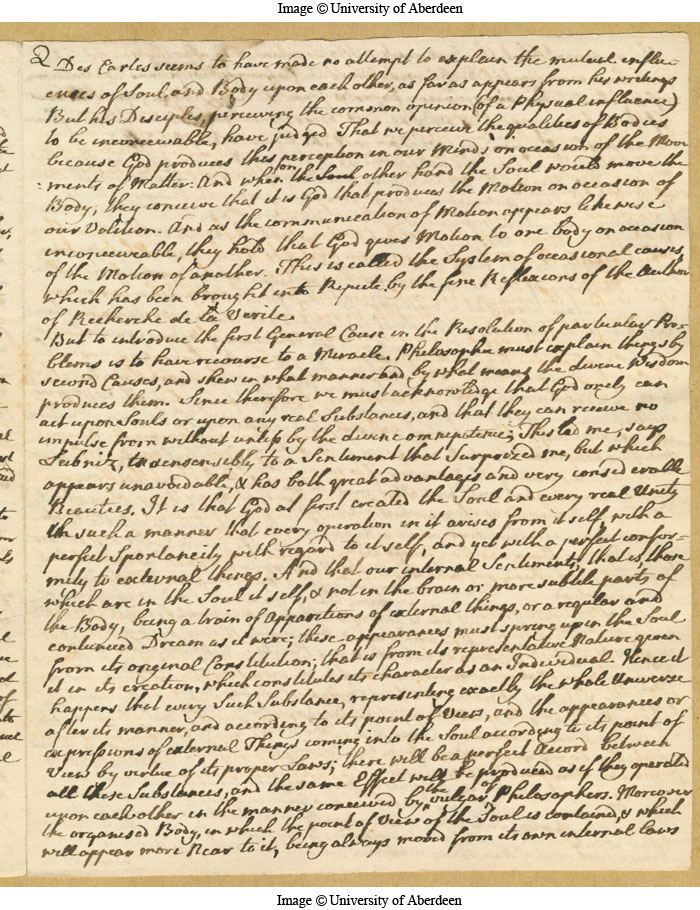 Image © University of Aberdeen
2
Des Cartes seems to have made no attempt to explain the mutual influ-
ences of Soul and Body upon each other, as far as appears from his writings
But his Disciples, perceiving the common opinion (of a Physical influence)
to be inconceivable, have judged That we perceive the qualities of Bodies
because God produces this perception in our Minds on occasion of the Mov
:ments of Matter. And when on the Soul other hand the Soul would move the
Body, they conceive that it is God that produces the Motion on occasion of
our Volition. And as the communication of Motion appears likewise
inconceiveable, they hold that God gives Motion to one body on occasion
of the Motion of another. This is called the System of occasional causes,
which has been brought into Repute by the fine Reflexions of the Author
of Recherche de la Verite.
But to introduce the first General Cause in the Resolution of particular Pro-
blems is to have recourse to a Miracle. Philosophie must explain things by
second Causes, and shew in what manner and by what means the divine Wisdom
produces them. Since therefore we must acknowledge that God onely can
act upon Souls or upon any real Substances, and that they can receive no
impulse from without unless by the divine omnipotence; This led me, says
Leibnitz, insensibly to a Sentiment that Surprized me, but which
appears unavoidable, & has both great advantages and very considerable
Beauties. It is that God at first created the Soul and every real Unity
in such a manner that every operation in it arises from it self, with a
perfect Spontaneity with regard to it self, and yet with a perfect confor-
mity to external things. And that our internal Sentiments, that is, those
which are in the Soul it self, & not in the brain or more subtile parts of
the Body, being a train of Apparitions of external things, or a regular and
continued Dream as it were; these appearances must spring up in the Soul
from its original Constitution; that is from its representative Nature given
it in its creation, which constitutes its character as an Individual. Hence it
happens that every Such Substance, representing exactly the whole Universe
after its manner, and according to its point of View, and the appearances or
expressions of external Things coming into the Soul according to its point of
View by virtue of its proper Laws; there will be a perfect Accord between
all these Substances, and the same Effect will be produced as if they operated
upon each other in the manner conceived by the vulgar of Philosophers. Moreover
the organised Body, in which the point of view of the Soul is contained, & which
will appear more Near to it, being always moved from its own internal laws
Image © University of Aberdeen